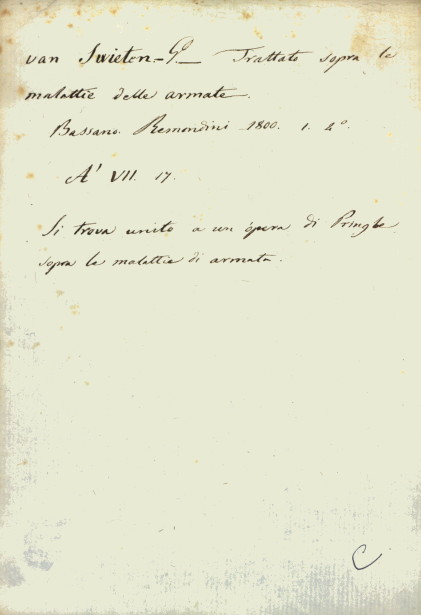 van Swieten. G. — Trattato sopra le
malattie delle armate.
Bassano. Remondini 1800. 1. 4º.
A' VII. 17.
Si trova unito a un ópera di Pringle
sopra le malattie di armata.
C